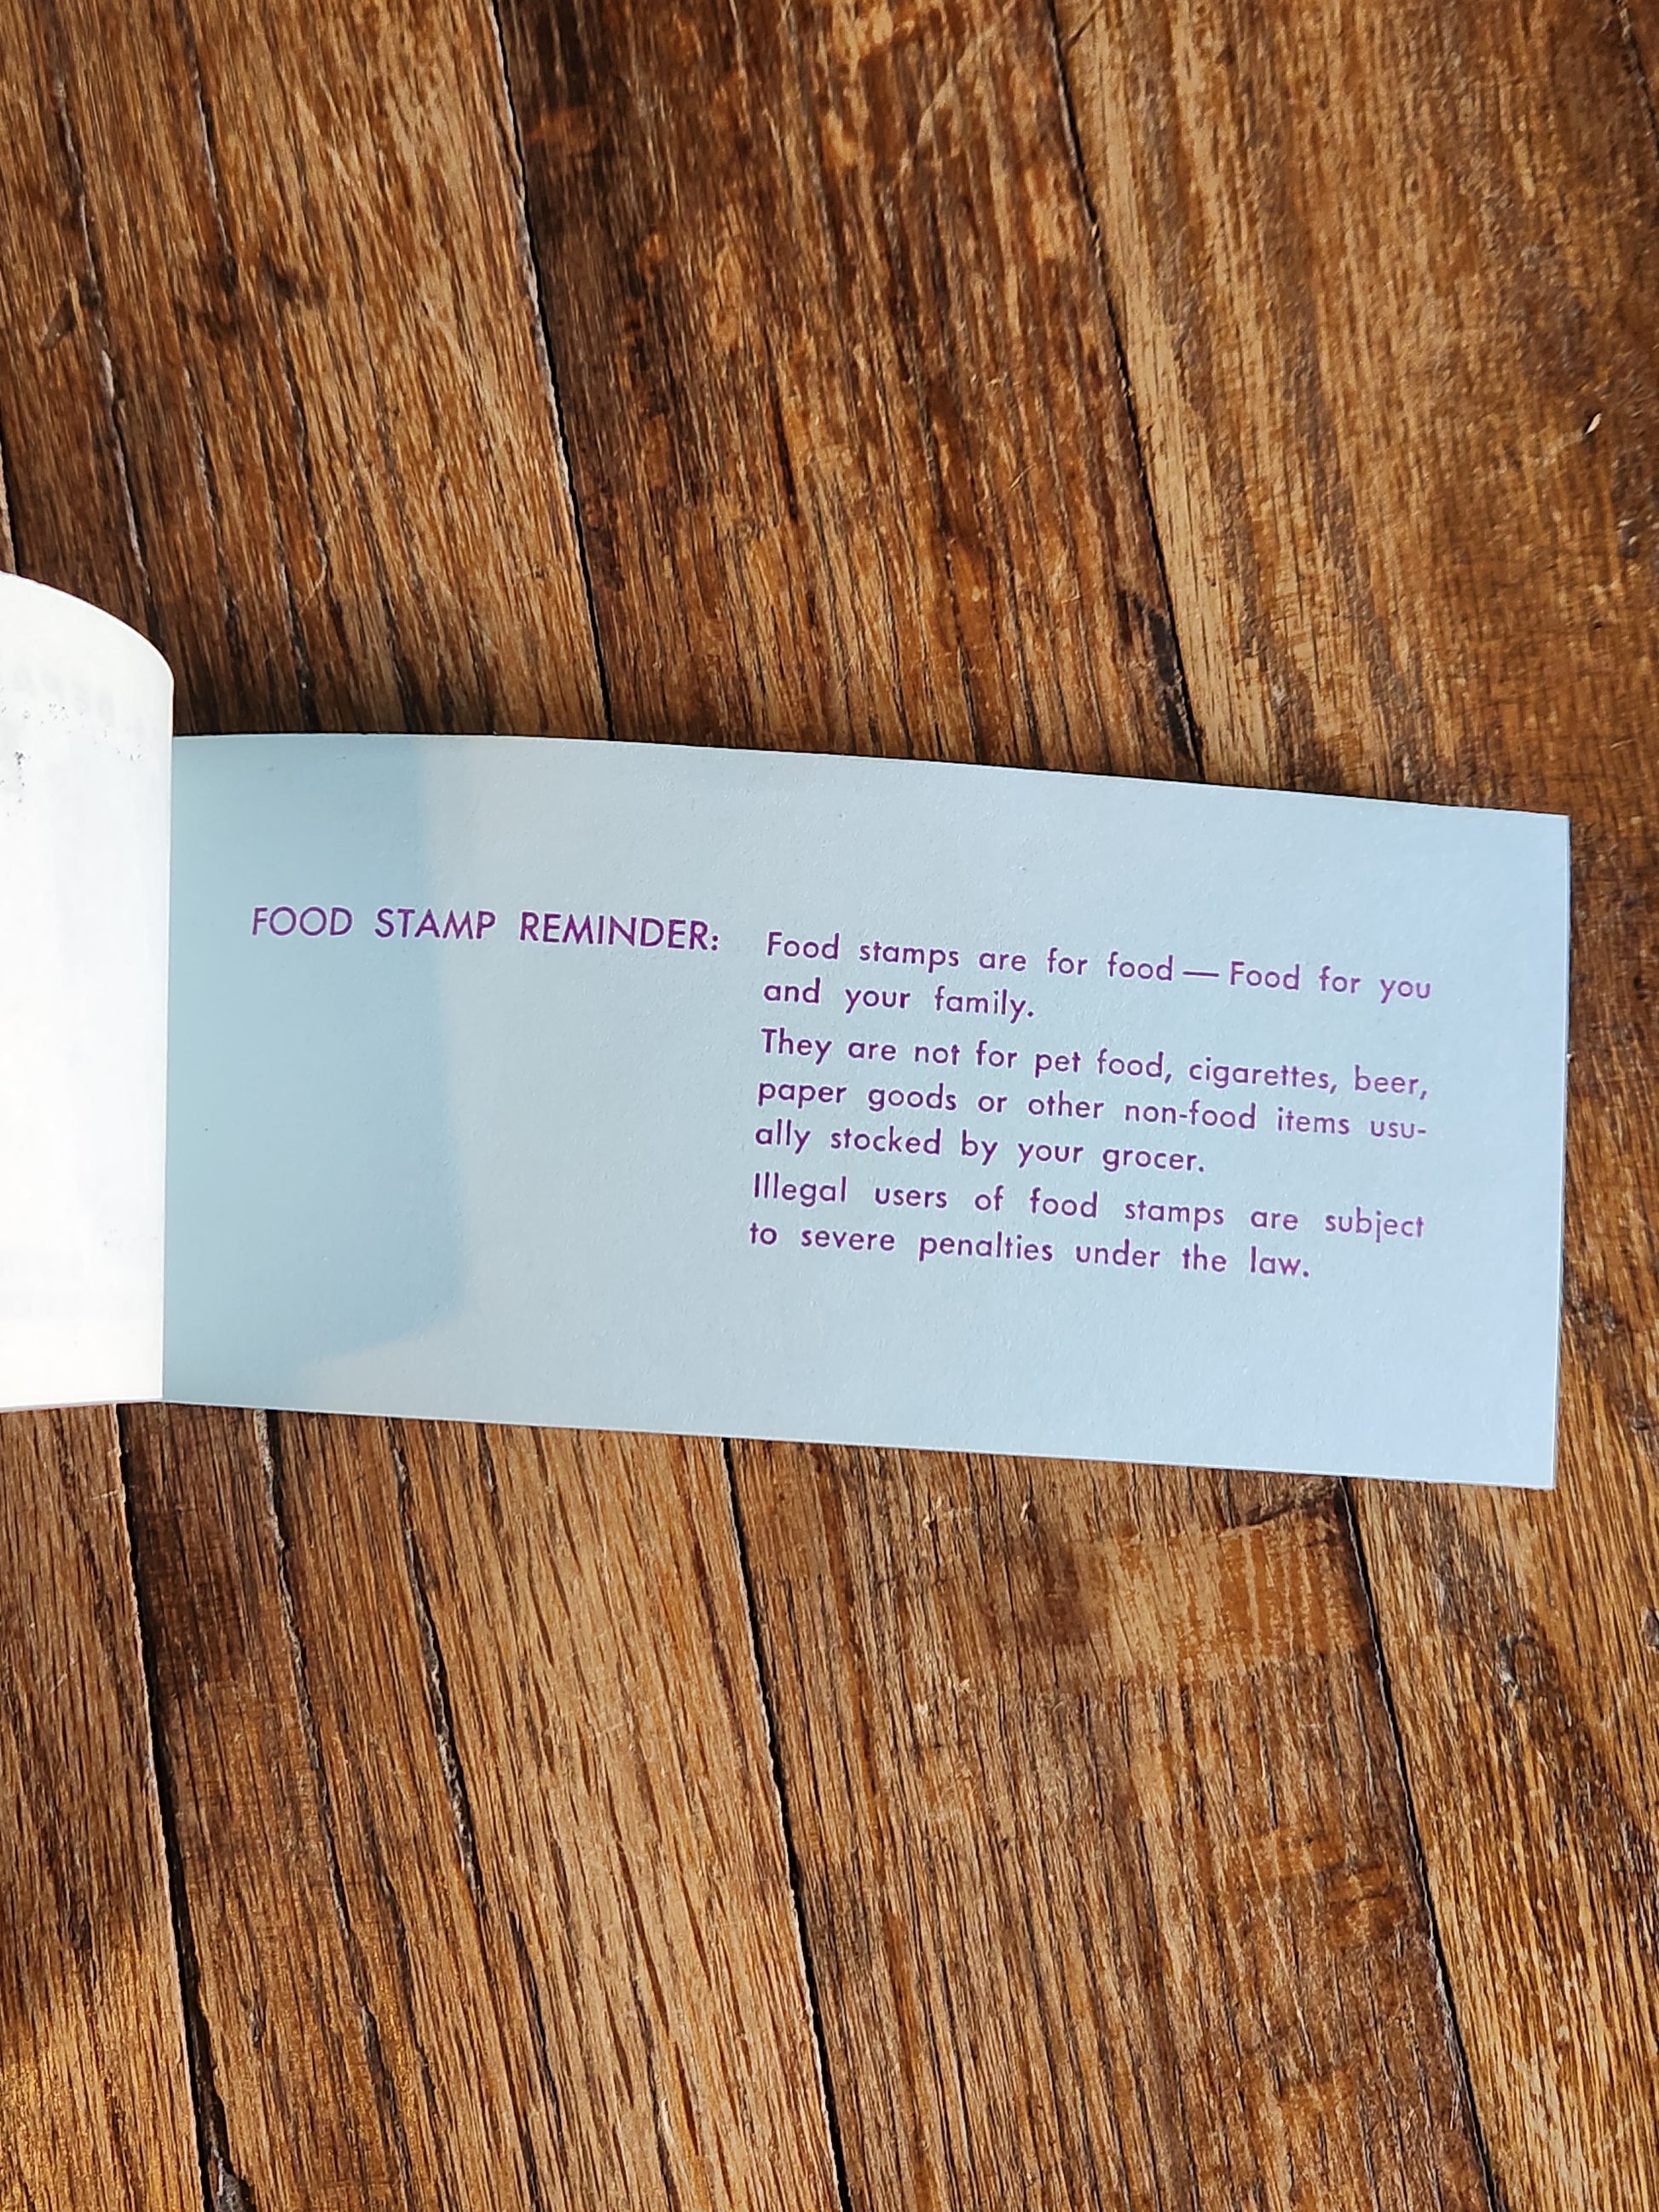 FOOD STAMP REMINDER: Food stamps are for food — Food for you
and your family.
They are not for pet food, cigarettes, beer,
paper goods or other non-food items usu-
ally stocked by your grocer.
Illegal users of food stamps are subject
to severe penalties under the law.